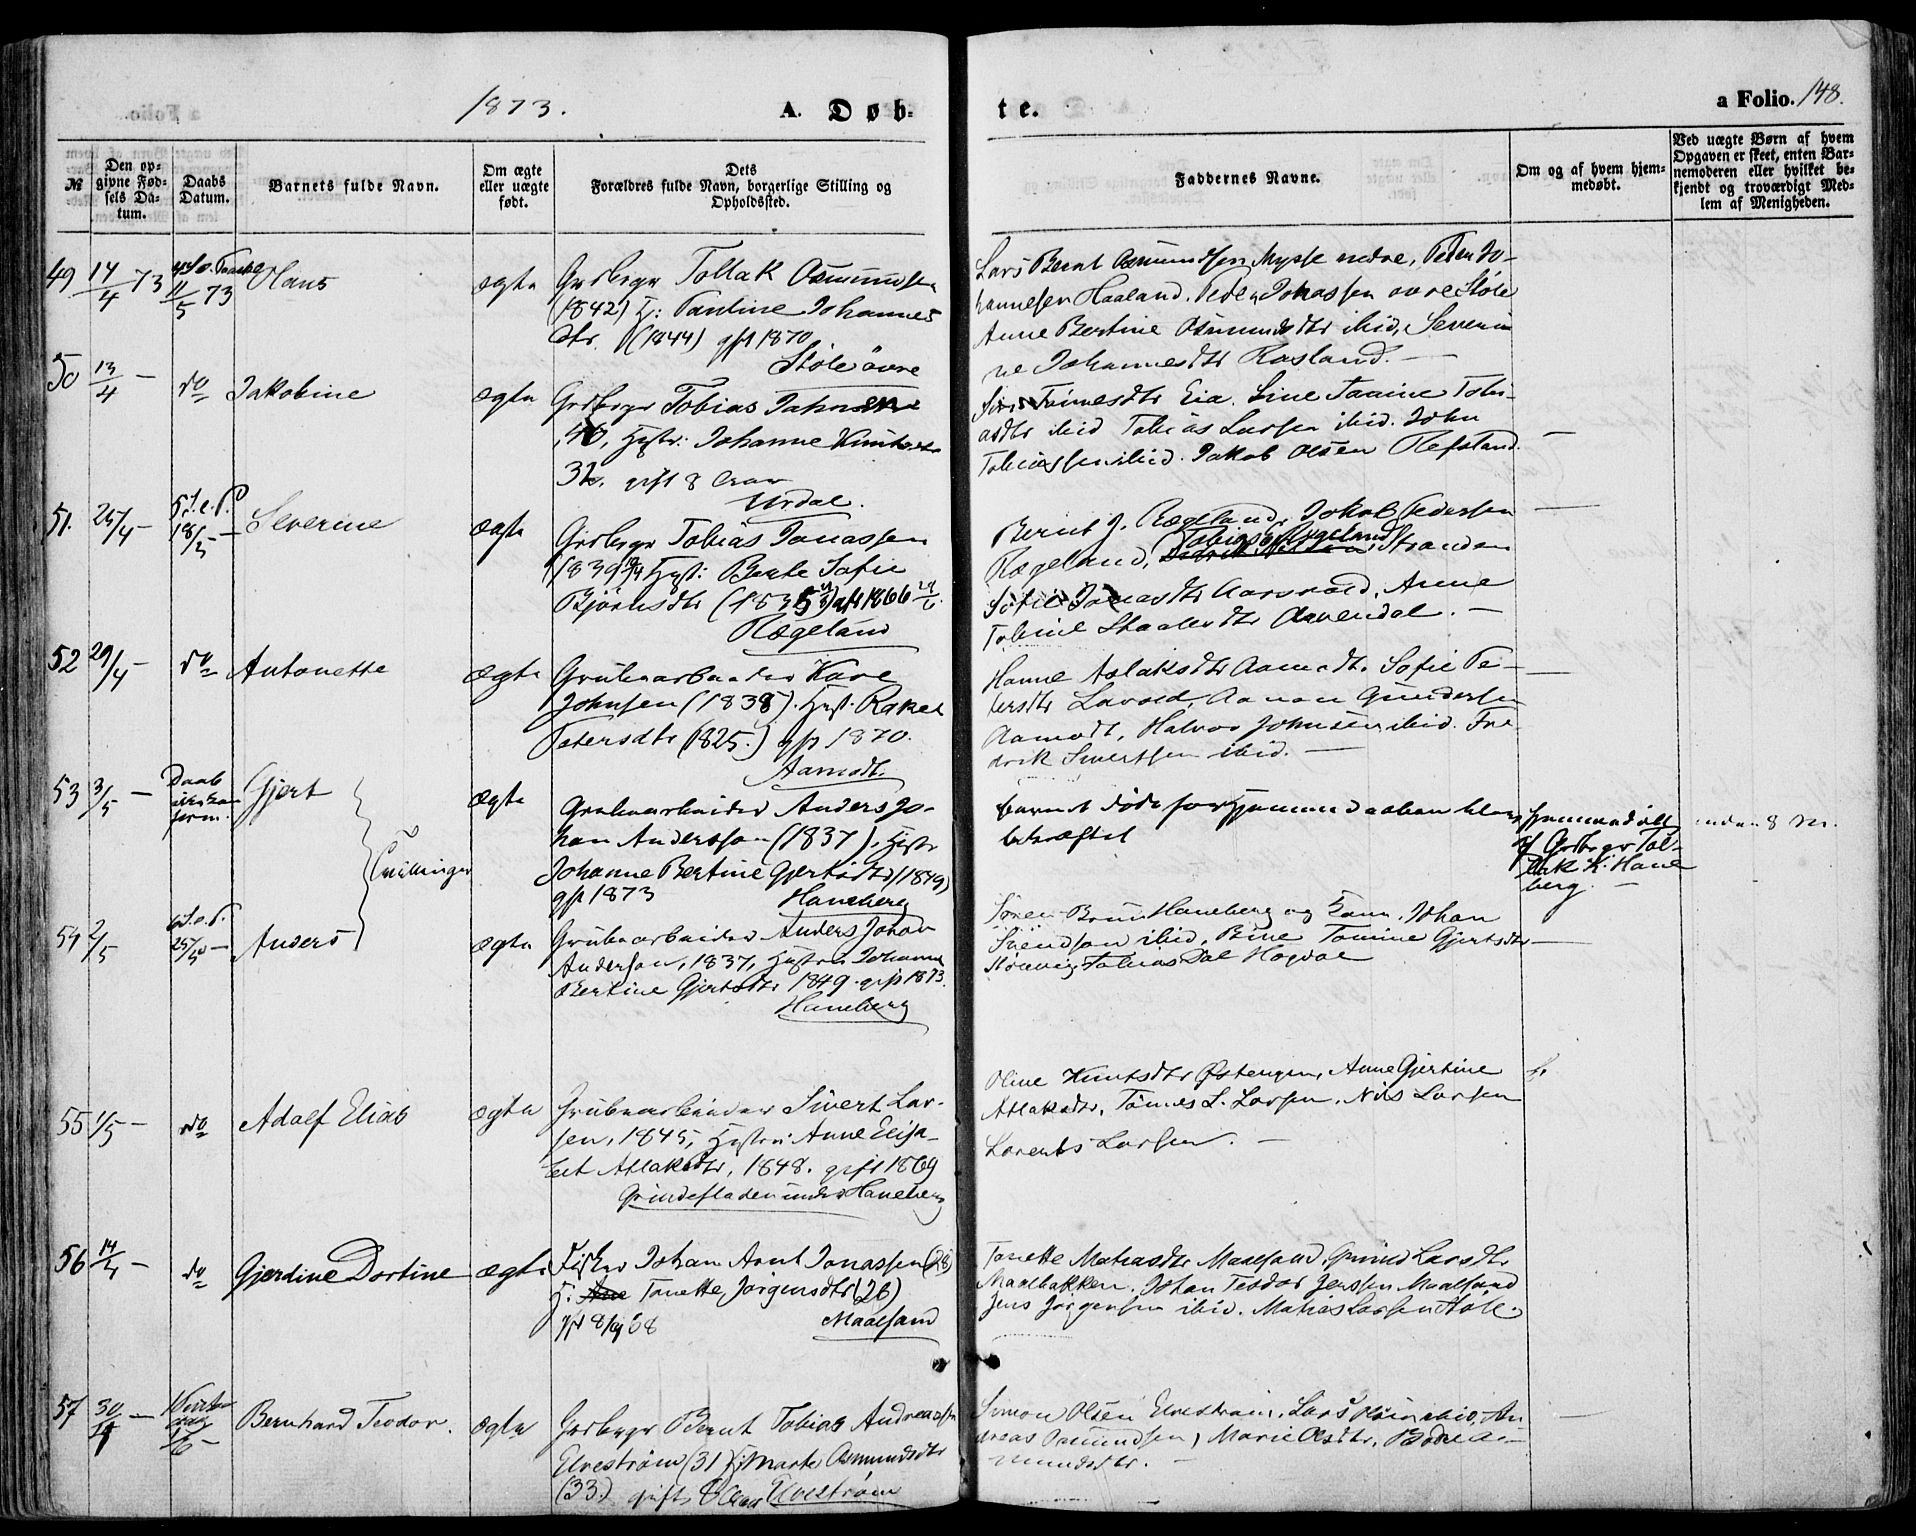 1873.
A. Døb-
te.
a Folio. 148.
№
Den op-
givne Fød-
sels Da-
tum.
Daabs
Datum.
Barnets fulde Navn.
Om ægte
eller uægte
født.
Dets
Forældres fulde Navn, borgerlige Stilling og
Opholdssted.
Faddernes Navne.
Om og af hvem hjem-
medøbt.
Ved uægte Børn af hvem
Opgaven er skeet, enten Bar-
nemoderen eller hvilket be-
kjendt og troværdigt Med-
lem af Menigheden.
49 14/4 73
11/5 73
Hans
ægte
Grdbrgr Tollak Osmundsen
(1842) H: Tantine Johannes
dtr. (1844) gft 1870
Støle øvre
Lars Bernt Osmundsen Mysse nedre, Peder Jo-
hannesen Haaland. Peder Johassen øvre Støle
Anne Bertine Osmundsdtr ibid, Severi
ne Johannesdtr Rosland. —
50 13/4 —
do
Jakobine
ægte
Grdbrgr Tobias Jahnsen
40, Hustr: Johanne
32, gift 8 Aar
Urdal.
Tønnesdtr Eia. Line Tomine Tobi-
asdtr ibid Tobias Larsen ibid. John
Tobiassen ibid. Jakob Olsen Refsland.
51. 25/4 —
5 S. e. P.
18/5 —
Severine
ægte
Grdbrgr Tobias Jonassen
1839 Hust: Berte Sofie
Bjørnsdtr (1835) gft 1866
Rægeland
Bernt J. Rægeland, Jakob Pedersen
Rægeland, Stranden
Sofie Jonasdtr Aarsvold, Anne
Tobine Staalesdtr Aavendal. —
52 29/4 —
do
Antonette
ægte
Grubearbeider Kare
Johnsen (1838). Hust. Rakel
Petersdtr (1825.) gft 1870.
Aamodt.
Hanne Aslaksdtr Aamodt. Sofie Pe-
tersdtr Lavold, Aanon Gundersen
Aamodt, Halvor Johnsen ibid. Fre-
drik Sivertsen ibid. —
53 3/5 —
Daab
Gjert
Tvillinger
ægte
Grubearbeider Anders Jo-
han Andersson (1837), Hustr
Johanne Bertine Gjertsdtr (1849)
gft 1873 Haneberg
barnet døde før hjemmedaaben blev
bekræftet
hjemmedøbt
af Grdbrgr Tol-
lak K. Hane
berg. —
54 2/5
6 S. e. P.
25/5 —
Anders
ægte
Grubearbeider Anders Johan
Anderson, 1837, Hustru Johanne
Bertine Gjertsdtr 1849. gift 1873.
Haneberg
Søren Bruun Haneberg og Kone, Johan
Svendsen ibid, Bine Tomine Gjertsdtr
Tobias Dal
55 1/5 —
do
Adolf Elias
ægte
Grubearbeider Sivert Lar-
sen, 1845, Hustru Anne Elisa-
bet Atlaksdtr, 1848. gift 1869
Grindefladen under Haneberg
Oline Knutsdtr Østengen, Anne Gjertine
Atlaksdtr, Tønnes L. Larsen, Nils Larsen
Lorents Larsen. —
56 14/4 —
do
Gjerdine Dortine
ægte
Fisker Johan Arnt Jonassen (28)
H: Tonette Jørgensdtr (26)
Maalsand
Tonette Matiasdtr Maalsand, Gurind Larsdtr
Maalbakken. Johan Teodor Jenssen Maalsand
Jens Jørgensen ibid. Matias Larsen Støle.
57 30/4 —
Bernhard Teodor.
ægte
Grdbrgr Bernt Tobias Andreassen
Elvestrøm (31) H: Marte Osmundsdtr
(33.) gift 8 Aar Elvestrøm
Simon Olsen Elvestrøm, Lars Olsen ibid, An
dreas Osmundsen, Marie Olsdtr, Bodil As-
mundsdtr. —